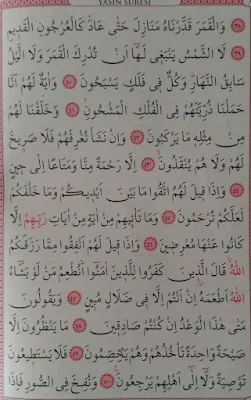 YASİN SURESİ
وَالْقَمَرَ قَدَّرْنَاهُ مَنَازِلَ حَتّٰى عَادَ كَالْعُرْجُونِ الْقَدِيمِ
٣٩ لَا الشَّمْسُ يَنْبَغِي لَهَا اَنْ تُدْرِكَ الْقَمَرَ وَلَا الَّيْلُ
سَابِقُ النَّهَارِ وَكُلٌّ فِي فَلَكٍ يَسْبَحُونَ ٤٠ وَاٰيَةٌ لَهُمْ اَنَّا
حَمَلْنَا ذُرِّيَّتَهُمْ فِي الْفُلْكِ الْمَشْحُونِ ٤١ وَخَلَقْنَا لَهُمْ
مِنْ مِثْلِهِ مَا يَرْكَبُونَ ٤٢ وَاِنْ نَشَأْ نُغْرِقْهُمْ فَلَا صَرِيخَ
لَهُمْ وَلَا هُمْ يُنْقَذُونَ ٤٣ اِلَّا رَحْمَةً مِنَّا وَمَتَاعًا اِلٰى حِينٍ
٤٤ وَاِذَا قِيلَ لَهُمُ اتَّقُوا مَا بَيْنَ اَيْدِيكُمْ وَمَا خَلْفَكُمْ
لَعَلَّكُمْ تُرْحَمُونَ ٤٥ وَمَا تَأْتِيهِمْ مِنْ اٰيَةٍ مِنْ اٰيَاتِ رَبِّهِمْ اِلَّا
كَانُوا عَنْهَا مُعْرِضِينَ ٤٦ وَاِذَا قِيلَ لَهُمْ اَنْفِقُوا مِمَّا رَزَقَكُمُ
اللّٰهُ قَالَ الَّذِينَ كَفَرُوا لِلَّذِينَ اٰمَنُوا اَنُطْعِمُ مَنْ لَوْ يَشَاءُ
اللّٰهُ اَطْعَمَهُ اِنْ اَنْتُمْ اِلَّا فِي ضَلَالٍ مُبِينٍ ٤٧ وَيَقُولُونَ
مَتٰى هٰذَا الْوَعْدُ اِنْ كُنْتُمْ صَادِقِينَ ٤٨ مَا يَنْظُرُونَ اِلَّا
صَيْحَةً وَاحِدَةً تَأْخُذُهُمْ وَهُمْ يَخِصِّمُونَ ٤٩ فَلَا يَسْتَطِيعُونَ
تَوْصِيَةً وَلَا اِلٰى اَهْلِهِمْ يَرْجِعُونَ ٥٠ وَنُفِخَ فِي الصُّورِ فَاِذَا